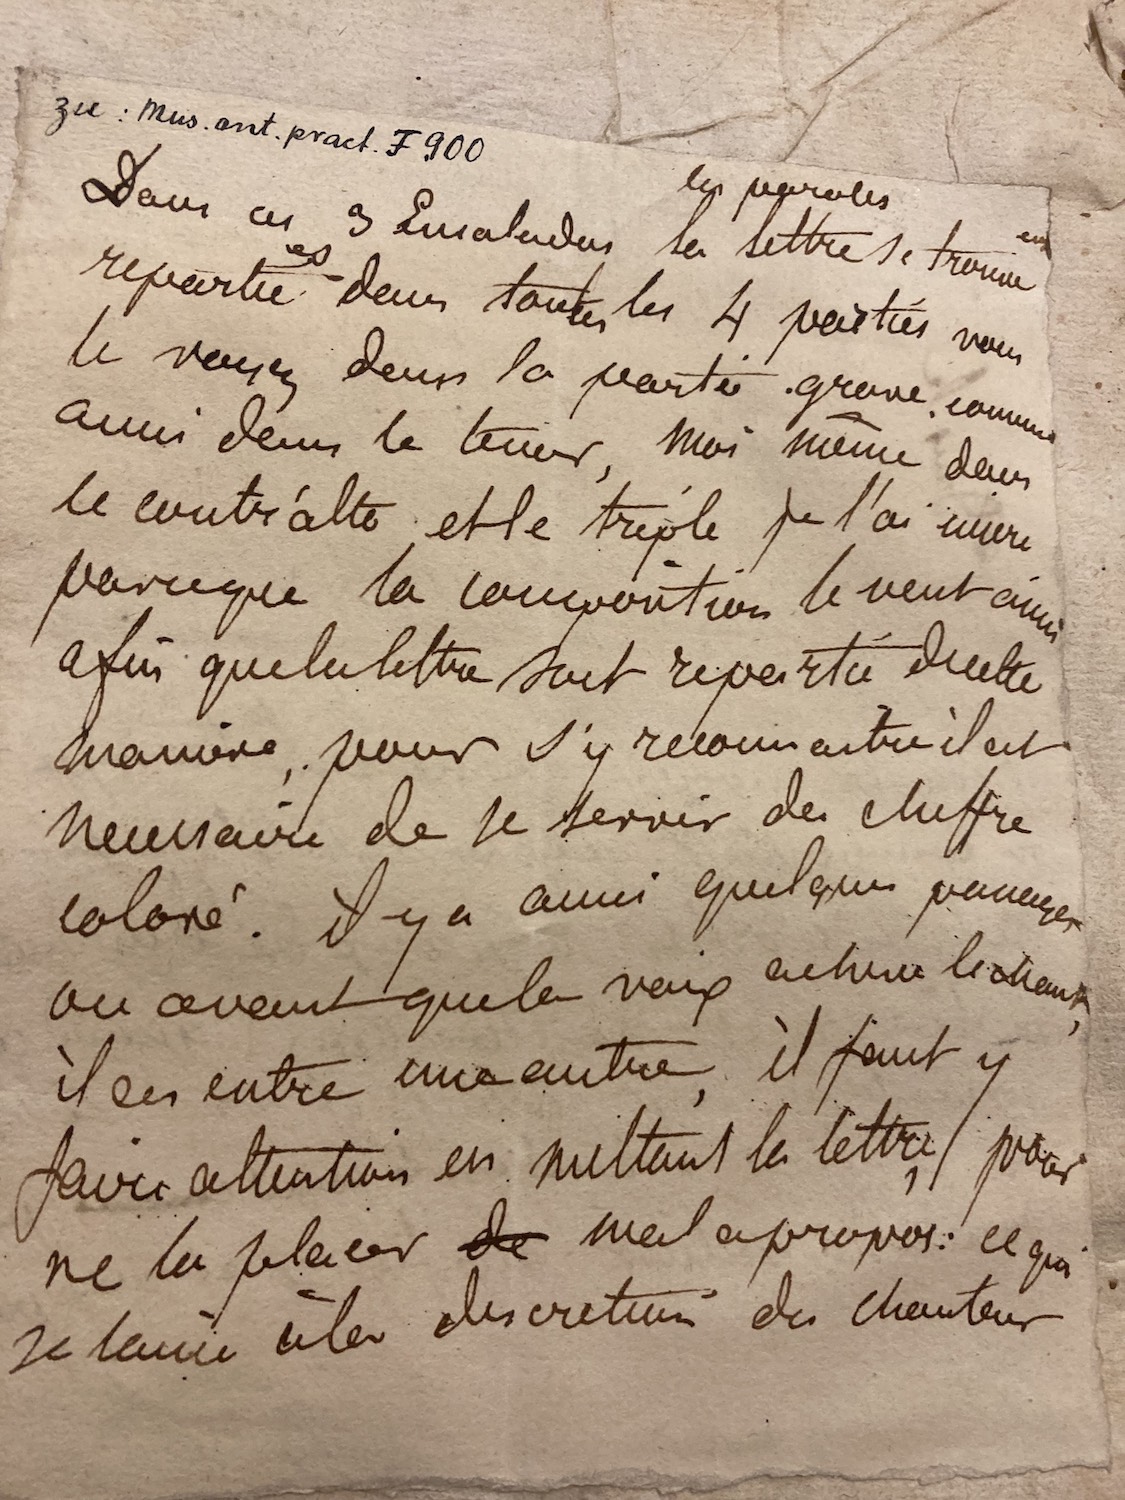 zu : Mus. ant. pract. F 900
les paroles
Dans ces 3 Ensaladas la lettre se trouve
ent
es
repartie dans toutes les 4 parties vous
le voyez dans la partie grave, comme
aussi dans le tenor, Moi même dans
le contr'alto et le triple je l'ai
parceque la composition le veut ainsi
afin que la lettre soit repartie de cette
maniere, pour s'y reconnaitre il est
necessaire de se servir des chiffre
coloré. il y a aussi quelques passages
ou avant que la voix acheve le chant,
il en entre une autre, il faut y
faire attention en mettant la lettre, pour
ne la placer de mal apropos: ce qui
se laisse à la discretion des chanteur